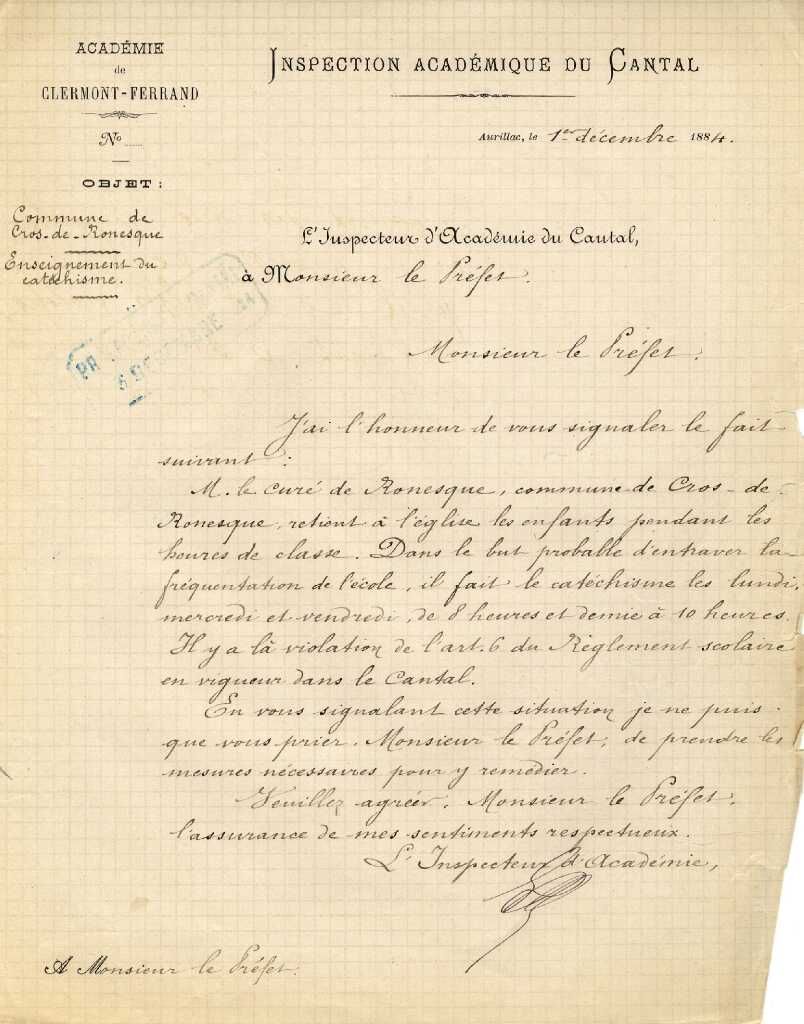 ACADÉMIE
de
CLERMONT-FERRAND
No
OBJET :
Commune de
Cros-de-Ronesque
Enseignement du
catéchisme.
INSPECTION ACADÉMIQUE DU CANTAL
Aurillac, le 1er décembre 1884.
L'Inspecteur d'Académie du Cantal,
à Monsieur le Préfet.
Monsieur le Préfet,
J'ai l'honneur de vous signaler le fait
suivant :
M. le curé de Ronesque, commune de Cros-de-
Ronesque, retient à l'église les enfants pendant les
heures de classe. Dans le but probable d'entraver la
fréquentation de l'école, il fait le catéchisme les lundi,
mercredi et vendredi, de 8 heures et demie à 10 heures.
Il y a là violation de l'art. 6 du Règlement scolaire
en vigueur dans le Cantal.
En vous signalant cette situation je ne puis
que vous prier, Monsieur le Préfet, de prendre les
mesures nécessaires pour y remédier.
Veuillez agréer, Monsieur le Préfet,
l'assurance de mes sentiments respectueux.
L'Inspecteur d'Académie,
A Monsieur le Préfet.